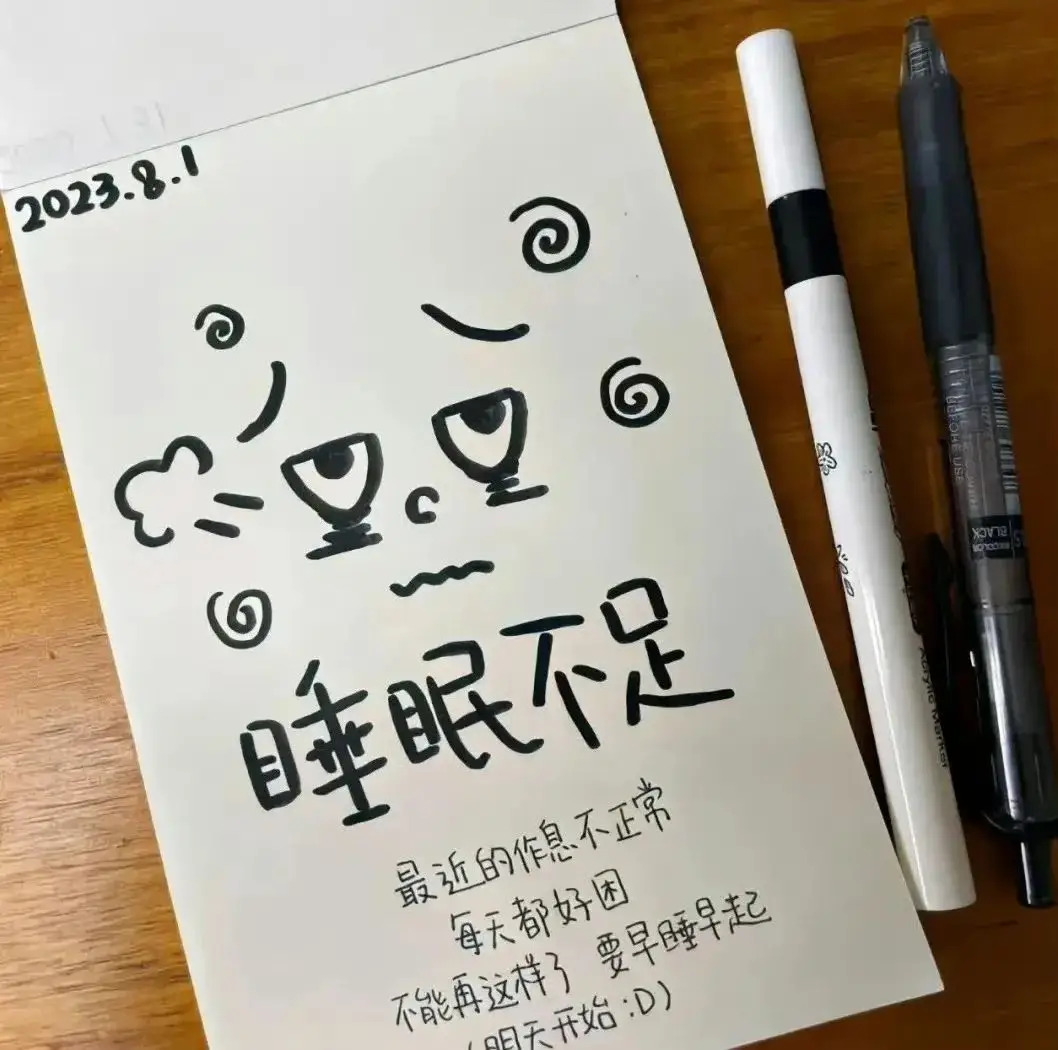 2023.8.1
睡眠不足
最近的作息不正常
每天都好困
不能再这样了 要早睡早起
(明天开始 :D)
Acrylic Marker
BEFORE USE
BLACK